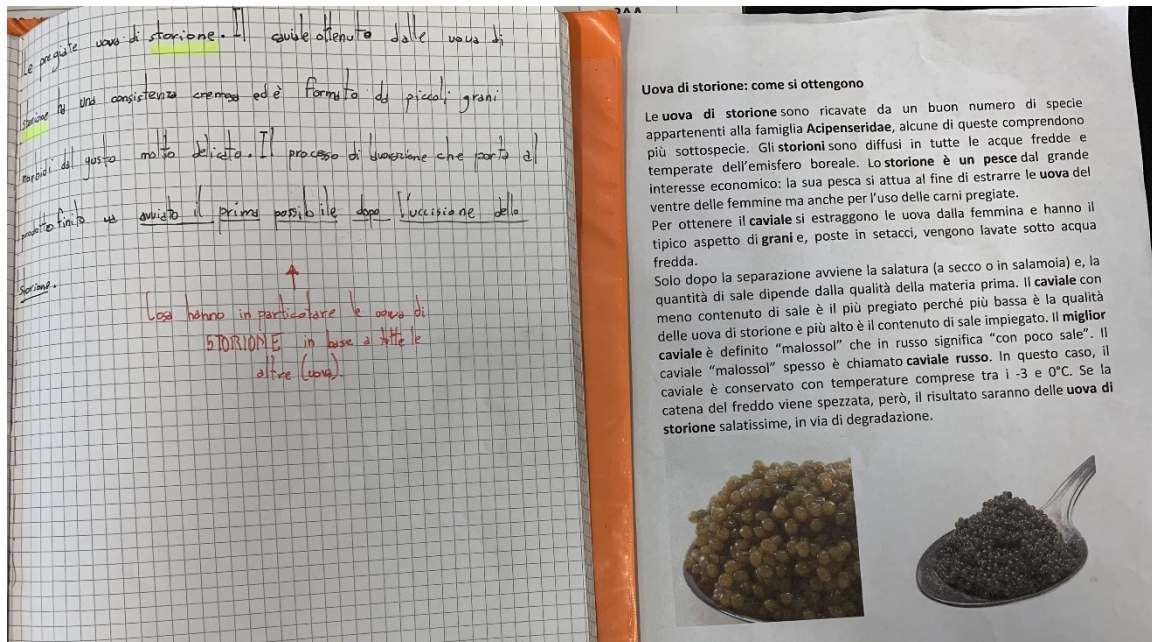 Le pregiate uova di storione. Il caviale ottenuto dalle uova di
storione ha una consistenza cremosa ed è formato da piccoli grani
morbidi dal gusto molto delicato. Il processo di che porta al
prodotto finito va avviato il prima possibile dopo l'uccisione dello
storione.
Cosa hanno in particolare le uova di
STORIONE in base a tutte le
altre (uova).
2AA
Uova di storione: come si ottengono
Le uova di storione sono ricavate da un buon numero di specie
appartenenti alla famiglia Acipenseridae, alcune di queste comprendono
più sottospecie. Gli storioni sono diffusi in tutte le acque fredde e
temperate dell'emisfero boreale. Lo storione è un pesce dal grande
interesse economico: la sua pesca si attua al fine di estrarre le uova del
ventre delle femmine ma anche per l'uso delle carni pregiate.
Per ottenere il caviale si estraggono le uova dalla femmina e hanno il
tipico aspetto di grani e, poste in setacci, vengono lavate sotto acqua
fredda.
Solo dopo la separazione avviene la salatura (a secco o in salamoia) e, la
quantità di sale dipende dalla qualità della materia prima. Il caviale con
meno contenuto di sale è il più pregiato perché più bassa è la qualità
delle uova di storione e più alto è il contenuto di sale impiegato. Il miglior
caviale è definito “malossol” che in russo significa “con poco sale”. Il
caviale “malossol” spesso è chiamato caviale russo. In questo caso, il
caviale è conservato con temperature comprese tra i -3 e 0°C. Se la
catena del freddo viene spezzata, però, il risultato saranno delle uova di
storione salatissime, in via di degradazione.